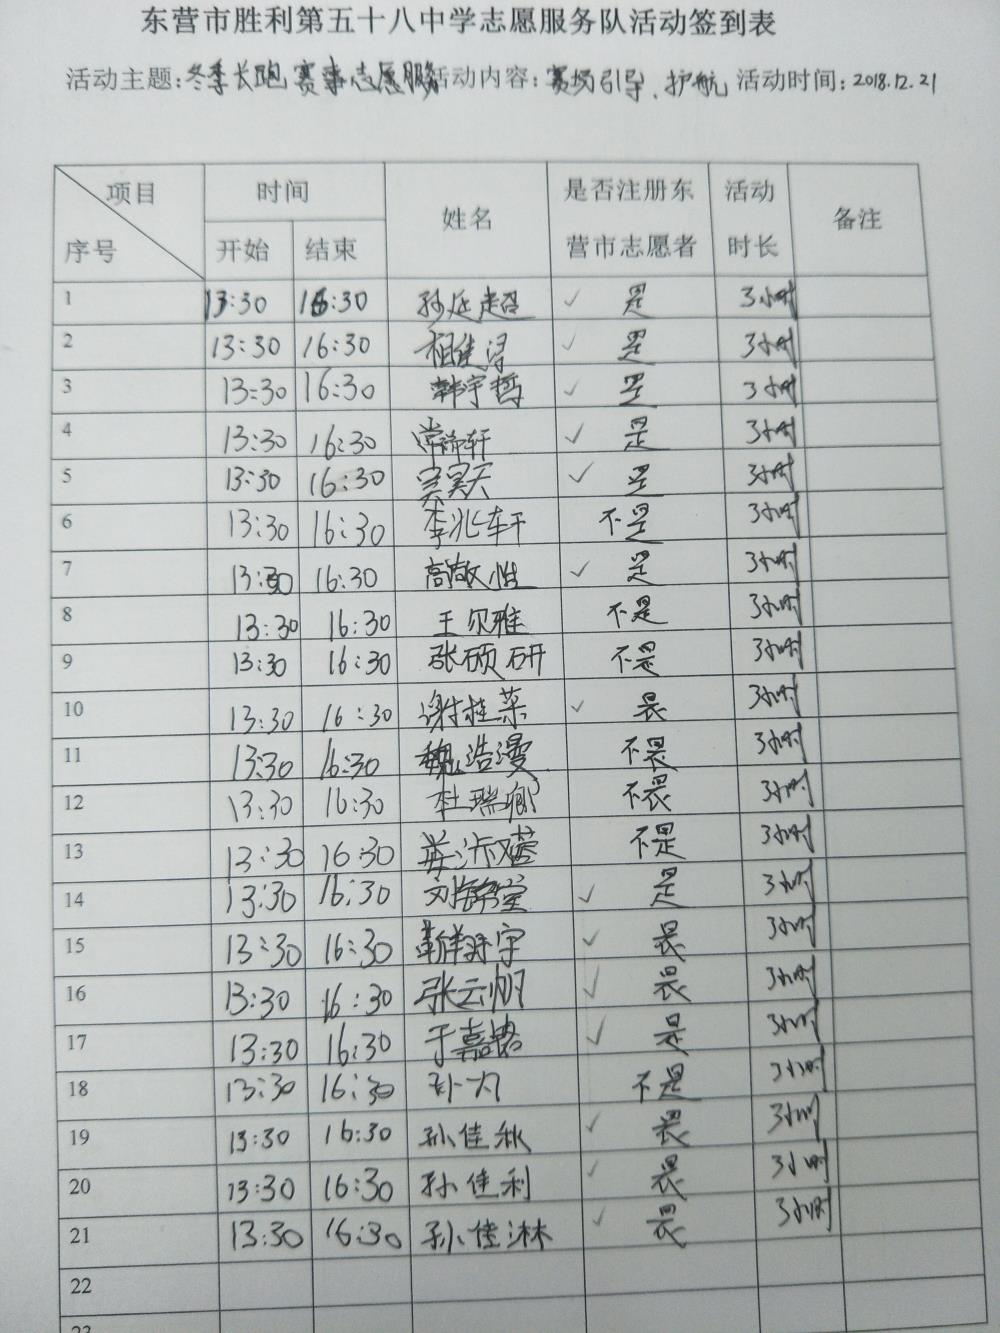 东营市胜利第五十八中学志愿服务队活动签到表
活动主题:冬季长跑赛事志愿服务 活动内容:赛场引导、护航 活动时间:2018.12.21
项目 时间 姓名 是否注册东 活动 备注
序号 开始 结束 营市志愿者 时长
1 13:30 16:30 孙廷超 ✓ 是 3小时
2 13:30 16:30 ✓ 是 3小时
3 13:30 16:30 韩宇哲 ✓ 是 3小时
4 13:30 16:30 ✓ 是 3小时
5 13:30 16:30 昊天 ✓ 是 3小时
6 13:30 16:30 李兆轩 不是 3小时
7 13:30 16:30 高敬 ✓ 是 3小时
8 13:30 16:30 王尔雅 不是 3小时
9 13:30 16:30 张硕研 不是 3小时
10 13:30 16:30 谢桂菜 ✓ 是 3小时
11 13:30 16:30 魏浩漫 不是 3小时
12 13:30 16:30 杜瑞卿 不是 3小时
13 13:30 16:30 不是 3小时
14 13:30 16:30 刘 ✓ 是 3小时
15 13:30 16:30 宇 ✓ 是 3小时
16 13:30 16:30 张云帆 ✓ 是 3小时
17 13:30 16:30 于嘉 ✓ 是 3小时
18 13:30 16:30 不是 3小时
19 13:30 16:30 孙佳秋 ✓ 是 3小时
20 13:30 16:30 孙佳利 ✓ 是 3小时
21 13:30 16:30 孙佳淋 ✓ 是 3小时
22
23